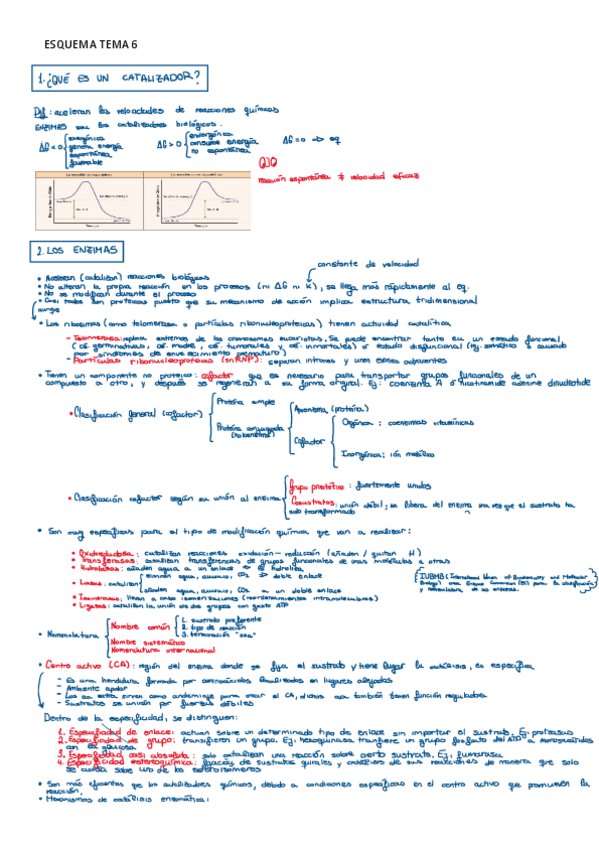 ESQUEMA TEMA 6
1. ¿QUÉ ES UN CATALIZADOR?
Def: aceleran las velocidades de reacciones químicas
ENZIMAS son los catalizadores biológicos.
ΔG < 0 exergónica genera energía espontánea favorable
ΔG > 0 endergónica consume energía no espontánea
ΔG = 0 => eq
OJO
reacción espontánea ≠ velocidad eficaz
2. LOS ENZIMAS
constante de velocidad
• Aceleran (catalizan) reacciones biológicas
• No alteran la propia reacción en los procesos (ni ΔG ni K), se llega más rápidamente al eq.
• No se modifican durante el proceso
• Casi todos son proteicas puesto que su mecanismo de acción implica estructura tridimensional
aunque
• Los ribosomas (como telomerasa o partículas ribonucleoproteicas) tienen actividad catalítica.
- Telomerasa: replica extremos de los cromosomas eucariotas. Se puede encontrar tanto en un estado funcional
(cél germinativas, cél madre, cél tumorales y cél inmortales) o estado disfuncional (ej. somático o causado
por síndromes de envejecimiento prematuro)
- Partículas ribonucleoproteicas (snRNP): separan intrones y unen exones adyacentes
• Tienen un componente no proteico: cofactor que es necesario para transportar grupos funcionales de un
compuesto a otro, y después se regeneran a su forma original. Ej: coenzima A o nicotinamide adenine dinucleotide
• Clasificación general (cofactor)
Proteína simple
Proteína conjugada (holoenzima)
Apoenzima (proteína)
Cofactor
Orgánica: coenzimas vitamínicas
Inorgánica: ión metálico
• Clasificación cofactor según su unión al enzima
Grupo prostético: fuertemente unidos
Cosustratos: unión débil; se libera del enzima una vez que el sustrato ha
sido transformado
• Son muy específicas para el tipo de modificación química que van a realizar:
• Oxidoreductasa: catalizan reacciones oxidación-reducción (añaden / quitan H)
• Transferasas: catalizan transferencias de grupos funcionales de unas moléculas a otras
• Hidrolasas: añaden agua a un enlace => lo hidroliza
• Liasas: catalizan
eliminan agua, amoniaco, CO2 => doble enlace
añaden agua, amoniaco, CO2 a un doble enlace
• Isomerasas: llevan a cabo isomerizaciones (reordenamientos intramoleculares)
• Ligasas: catalizan la unión de dos grupos con gasto ATP
IUBMB (International Union of Biochemistry and Molecular
Biology) crea Enzyme Commission (EC) para la clasificación
y nomenclatura de las enzimas.
• Nomenclatura
Nombre común
1. sustrato preferente
2. tipo de reacción
3. terminación "asa"
Nombre sistemático
Nomenclatura internacional
• Centro activo (CA): región del enzima donde se fija el sustrato y tiene lugar la catálisis, es específica
- Es una hendidura formada por aminoácidos localizados en lugares alejados
- Ambiente apolar
- Los aa restos sirven como andamiaje para crear el CA, dichos aa también tienen función reguladora
- Sustratos se unirán por fuerzas débiles
Dentro de la especificidad, se distinguen:
1. Especificidad de enlace: actúan sobre un determinado tipo de enlace sin importar el sustrato. Ej: proteasas
2. Especificidad de grupo: transfieren un grupo. Ej: hexoquinasa transfiere un grupo fosfato del ATP a monosacáridos
como la glucosa
3. Especificidad casi absoluta: solo catalizan una reacción sobre cierto sustrato. Ej: fumarasa
4. Especificidad estereoquímica: fijación de sustratos quirales y catálisis de sus reacciones de manera que solo
se actúa sobre uno de los estereoisómeros
• Son más eficientes que los catalizadores químicos, debido a condiciones específicas en el centro activo que promueven la
reacción.
• Mecanismos de catálisis enzimática: